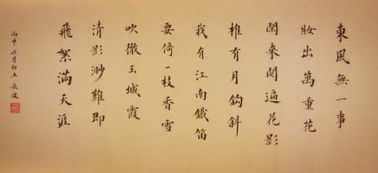 東風無一事
妝出萬重花
閑來閱遍花影
惟有月鉤斜
我有江南鐵笛
要倚一枝香雪
吹徹玉城霞
清影渺難即
飛絮滿天涯